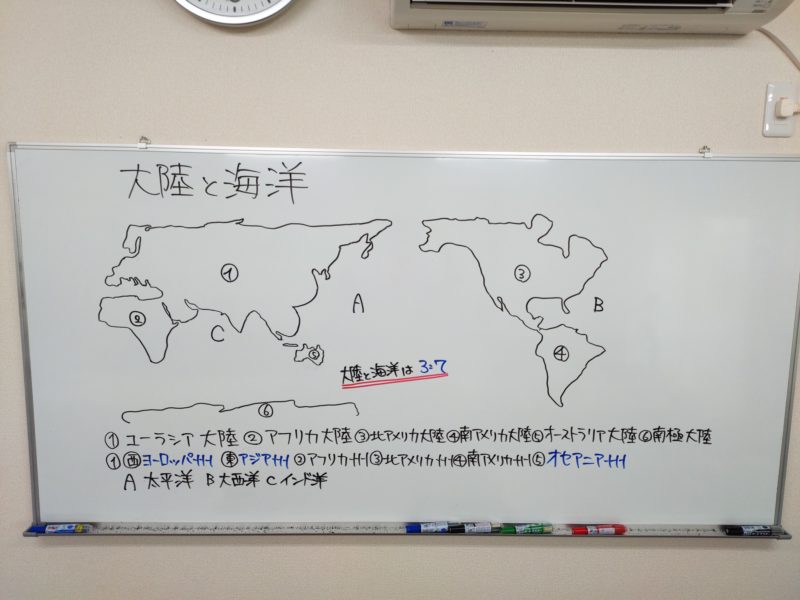 大陸と海洋
①
③
A
B
②
C
⑤
④
大陸と海洋は 3:7
⑥
①ユーラシア大陸 ②アフリカ大陸 ③北アメリカ大陸 ④南アメリカ大陸 ⑤オーストラリア大陸 ⑥南極大陸
①西ヨーロッパ州 東アジア州 ②アフリカ州 ③北アメリカ州 ④南アメリカ州 ⑤オセアニア州
A 太平洋 B 大西洋 C インド洋